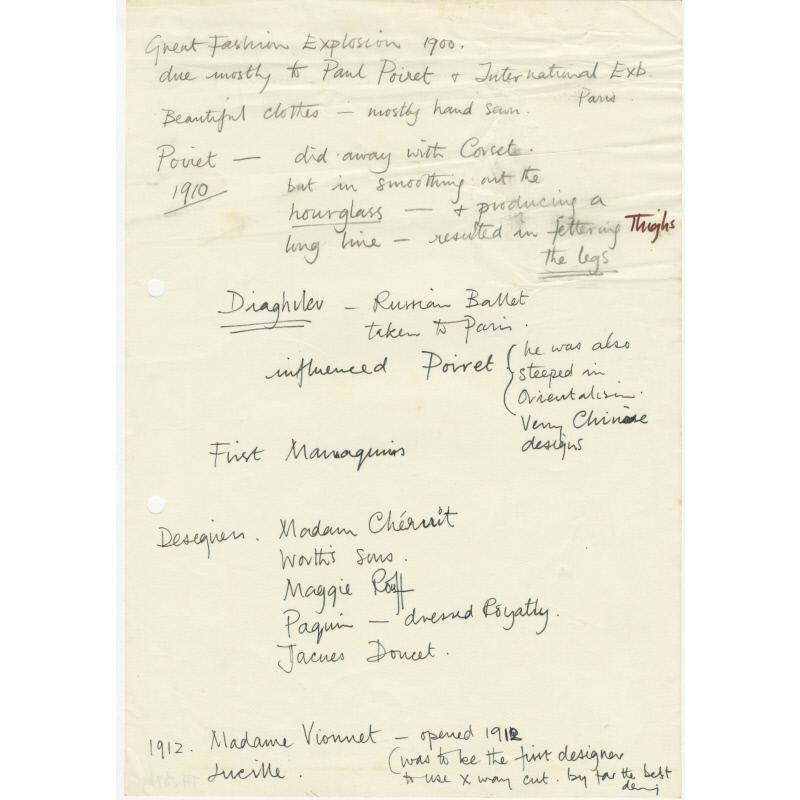 Great Fashion Explosion 1900.
due mostly to Paul Poiret + International Exb.
Paris.
Beautiful clothes – mostly hand sewn.
Poiret – did away with Corset.
1910
but in smoothing out the
hourglass – + producing a
long line – resulted in fettering Thighs
the legs
Diaghilev – Russian Ballet
taken to Paris.
influenced Poiret
he was also
steeped in
Orientalism.
Very Chinese
designs
First Mannaquins
Designers. Madam Chéruit
Worth's Sons.
Maggie Rouff
Paquin – dressed Royalty.
Jacues Doucet.
1912. Madame Vionnet – opened 1912
Lucille.
(was to be the first designer
to use X way cut. by far the best